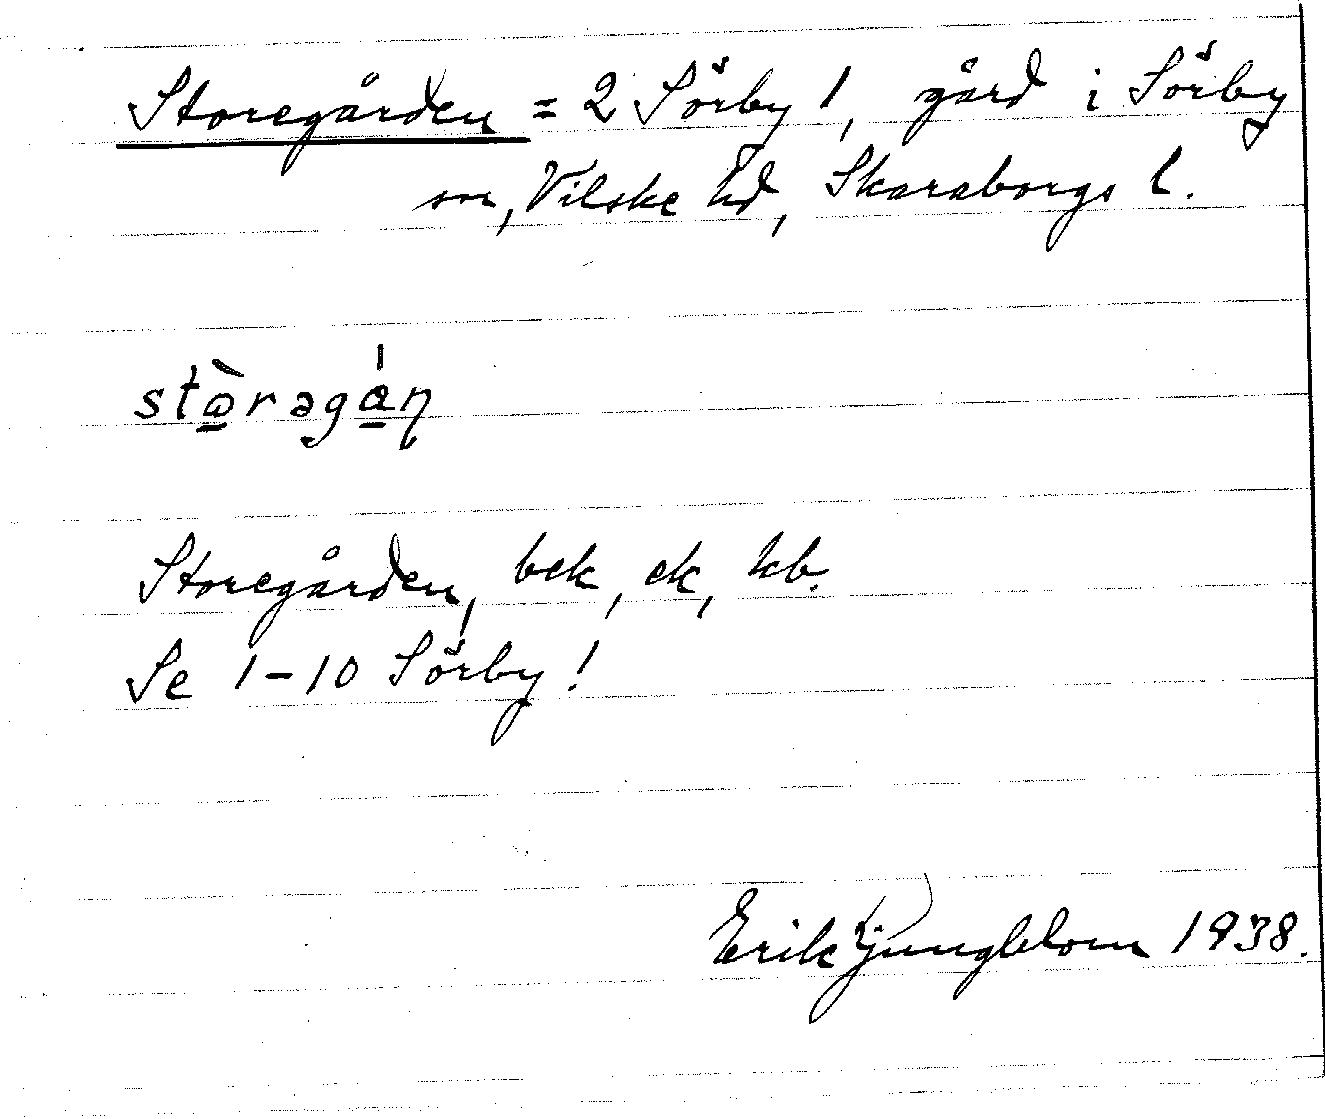 Storegården = 2 Sörby 1, gård i Sörby
sn, Vilske hd, Skaraborgs l.
Storegården, bek, ek, kb.
Se 1-10 Sörby!
Erik Ljungblom 1938.